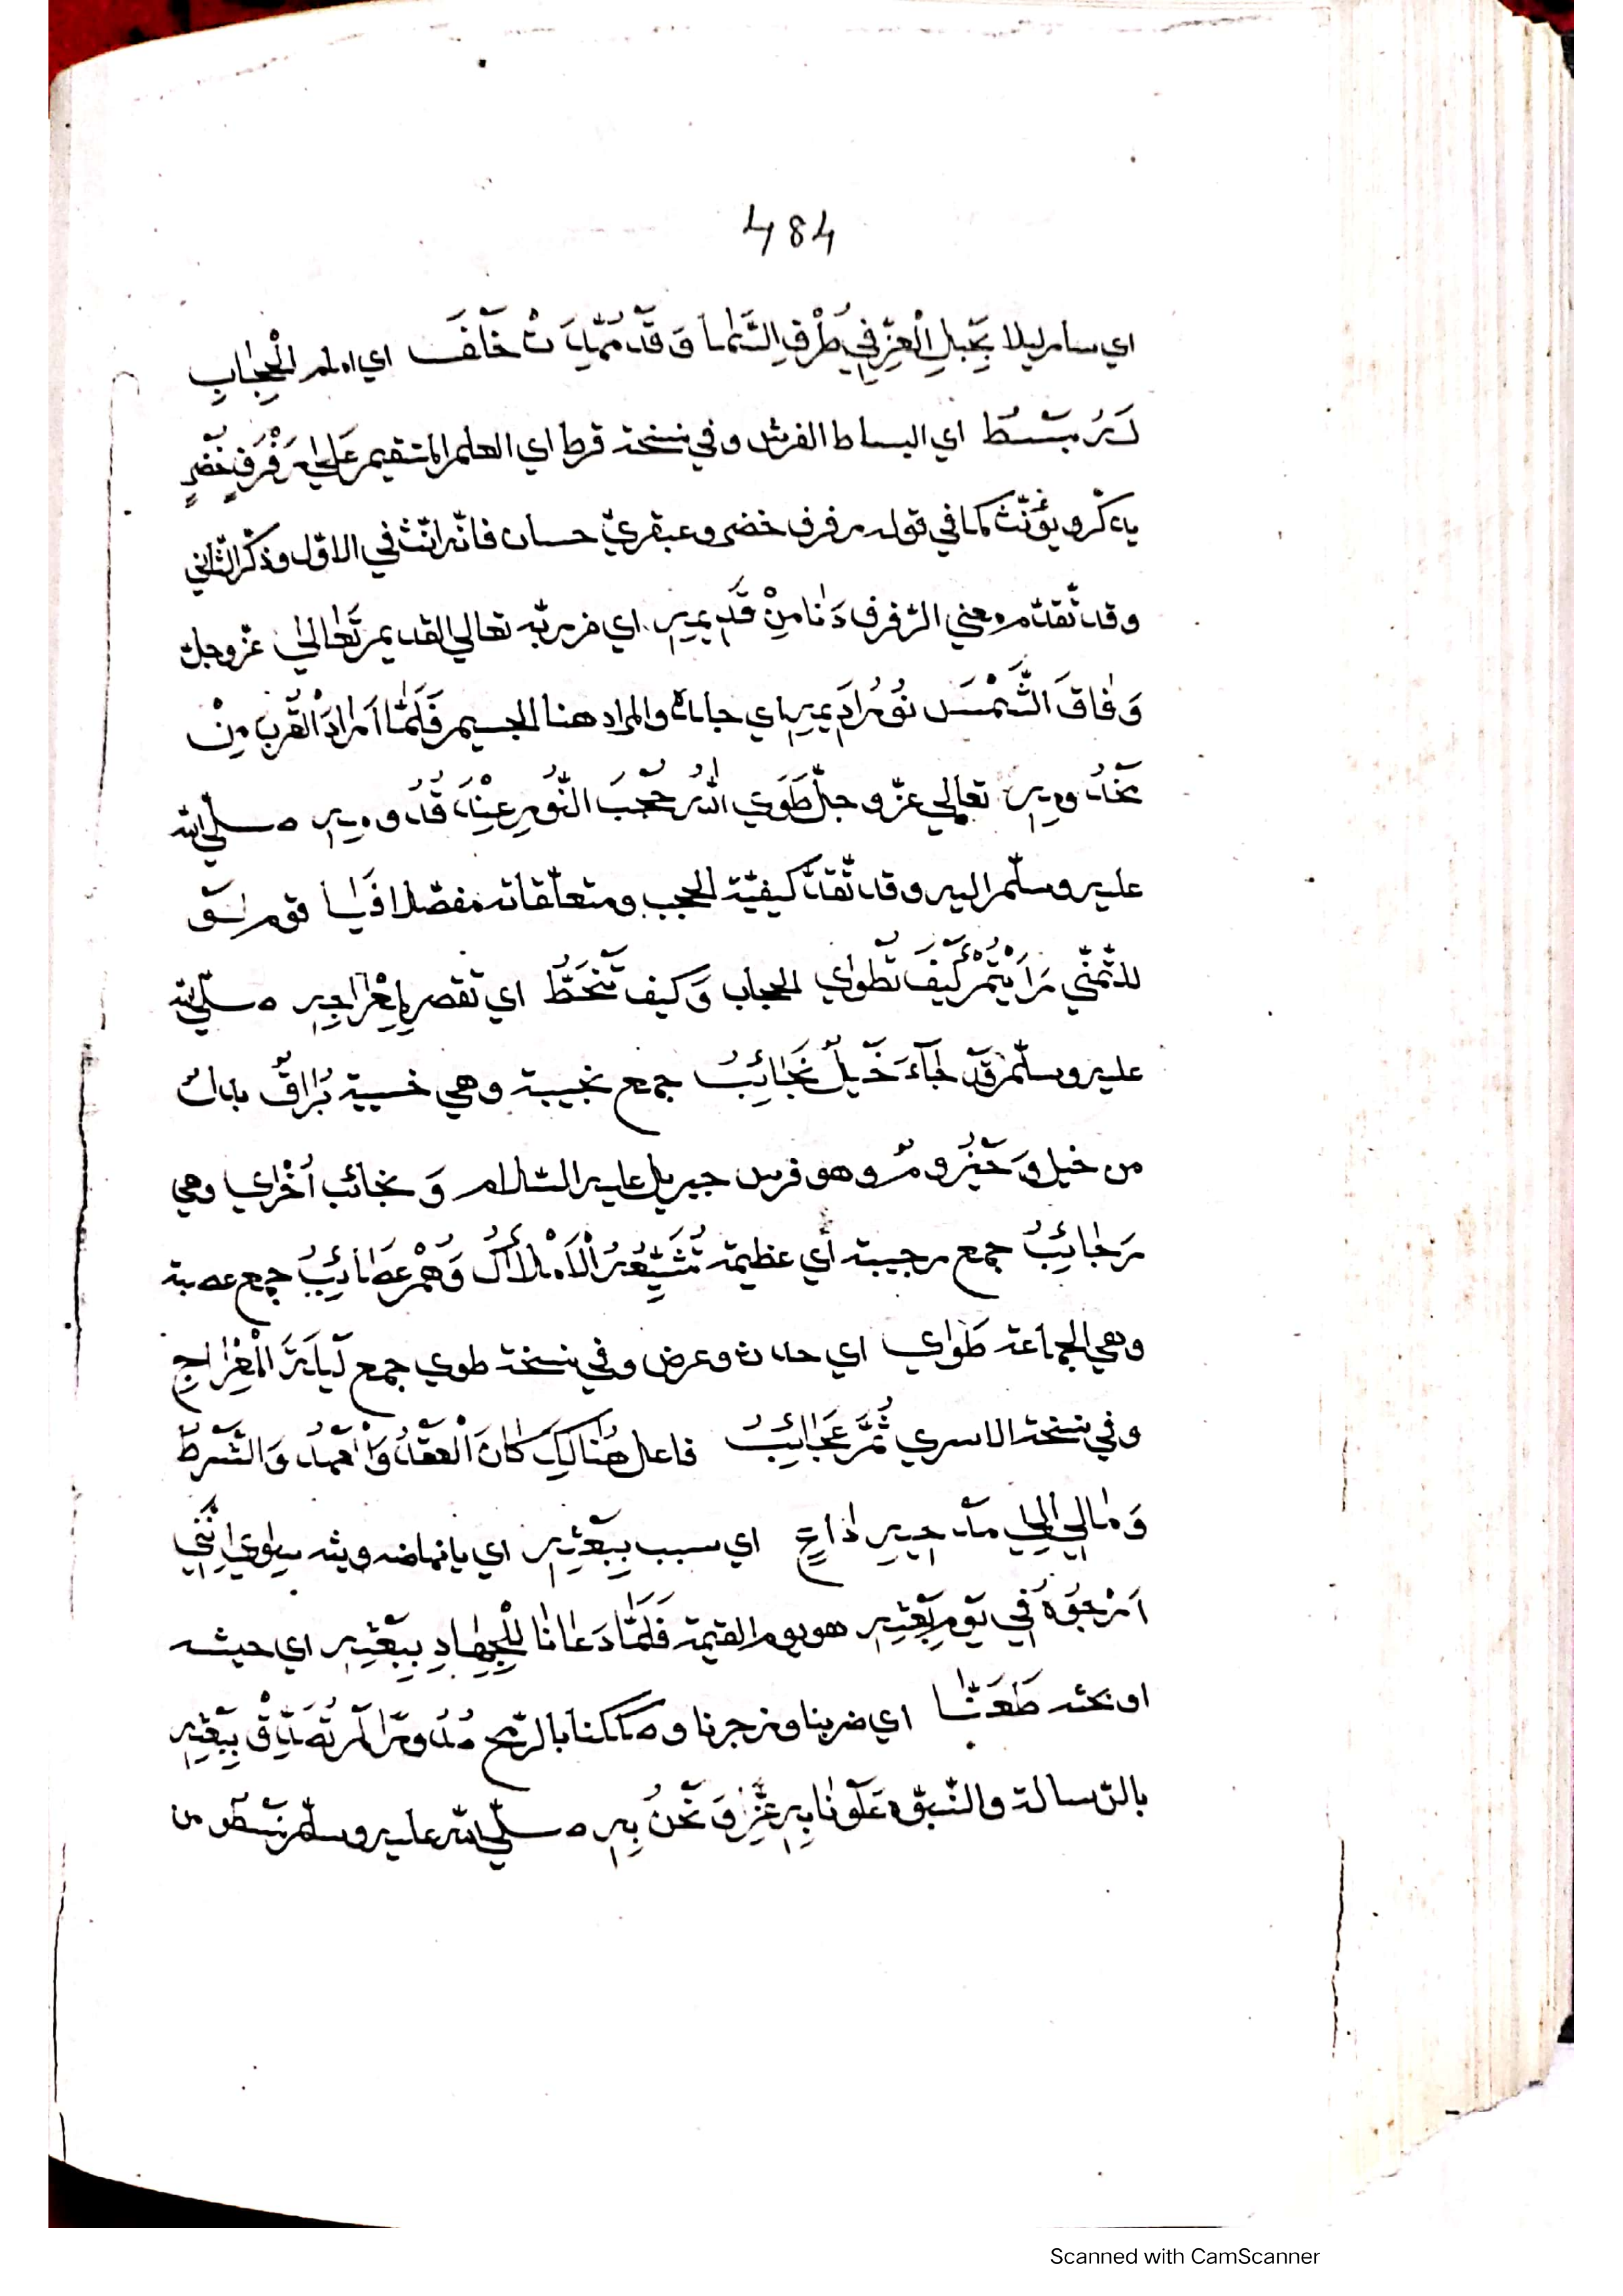 484
اي سار ليلا بِحَبْلِ الْعِزِّ فِي طُرْفِ السَّمَا وَقَدْ مُدِّدَتْ خَلْفَ اي امام الْحِجَابِ
لَهُ بُسُطٌ اي البساط الفرش وفي نسخة قرط اي العلم المستقيم عَلَى رَفْرَفٍ خُضْرٍ
يذكر ويؤنّث كما في قوله رفرف خضر وعبقريّ حسان فانّه انّث في الاوّل وذكّر الثّاني
وقد تقدّم معني الرّفرف دَنَا مِنْ قَدِيمِهِ اي قربه تعالي القديم تَعَالَى عزّ وجلّ
وَفَاقَ الشَّمْسَ نُورُ اَدِيمِهِ اي جلده والمراد هنا الجسيم فَلَمَّا اَرَادَ الْقُرْبَ مِنْ
مَخْدُومِهِ تعالي عزّ وجلّ طَوَى اللهُ حُجْبَ النُّورِ عِنْدَ قُدُومِهِ صلّي الله
عليه وسلّم اليه وقد تقدّم كيفيّة الحجب ومتعلّقاته مفصّلا فَيَا قوم
للتّمنّي رَاَيْتُمْ كَيْفَ تُطْوَى الحجاب وَكيف تَنْخَطُّ اي تقصر لِمِعْرَاجِهِ صلّي الله
عليه وسلّم قَدْ جَآءَ خَيْلٌ نَجَائِبُ جمع نجيبة وهي خسيبة بُرَاقٌ بدل
من خيل وَحَيْزُومُ وهو فرس جبريل عليه السّلام وَ نجائب اُخْرَى وهي
رَجَائِبُ جمع رجيبة أي عظيمة تُشَيِّعُهُ الْاَمْلَاكُ وَهُمْ عَصَائِبُ جمع عصبة
وهي الجماعة طَوَى اي حدث وعرض وفي نسخة طوي جمع لَيْلَةَ الْمِعْرَاجِ
وفي نسخة الاسري ثُمَّ عَجَائِبُ فاعل هُنَالِكَ كَانَ الْعَقْدُ وَالْعَهْدُ وَالشَّرْطُ
وَمَالِي اِلَى مَدْحِيهِ دَاعٍ اي سبب بِبَعْثِهِ اي بانهاضه وبثه سِوَى اِنَّنِي
اَرْجُوهُ فِي يَوْمِ بَعْثِهِ هو يوم القيمة فَلَمَّا دَعَانَا لِلْجِهَادِ بِبَعْثِهِ اي حيشه
او بحثه طَعَنَّا اي ضربنا وزجرنا وصككنا بالرّمح صُدُورًا لَمْ تُصَدِّقْ بِبَعْثِهِ
بالرّسالة والنّبوّة عَلَوْنَا بِهِ عِزًّا وَنَحْنُ بِهِ صلّي الله عليه وسلّم نَسْطُو من
Scanned with CamScanner